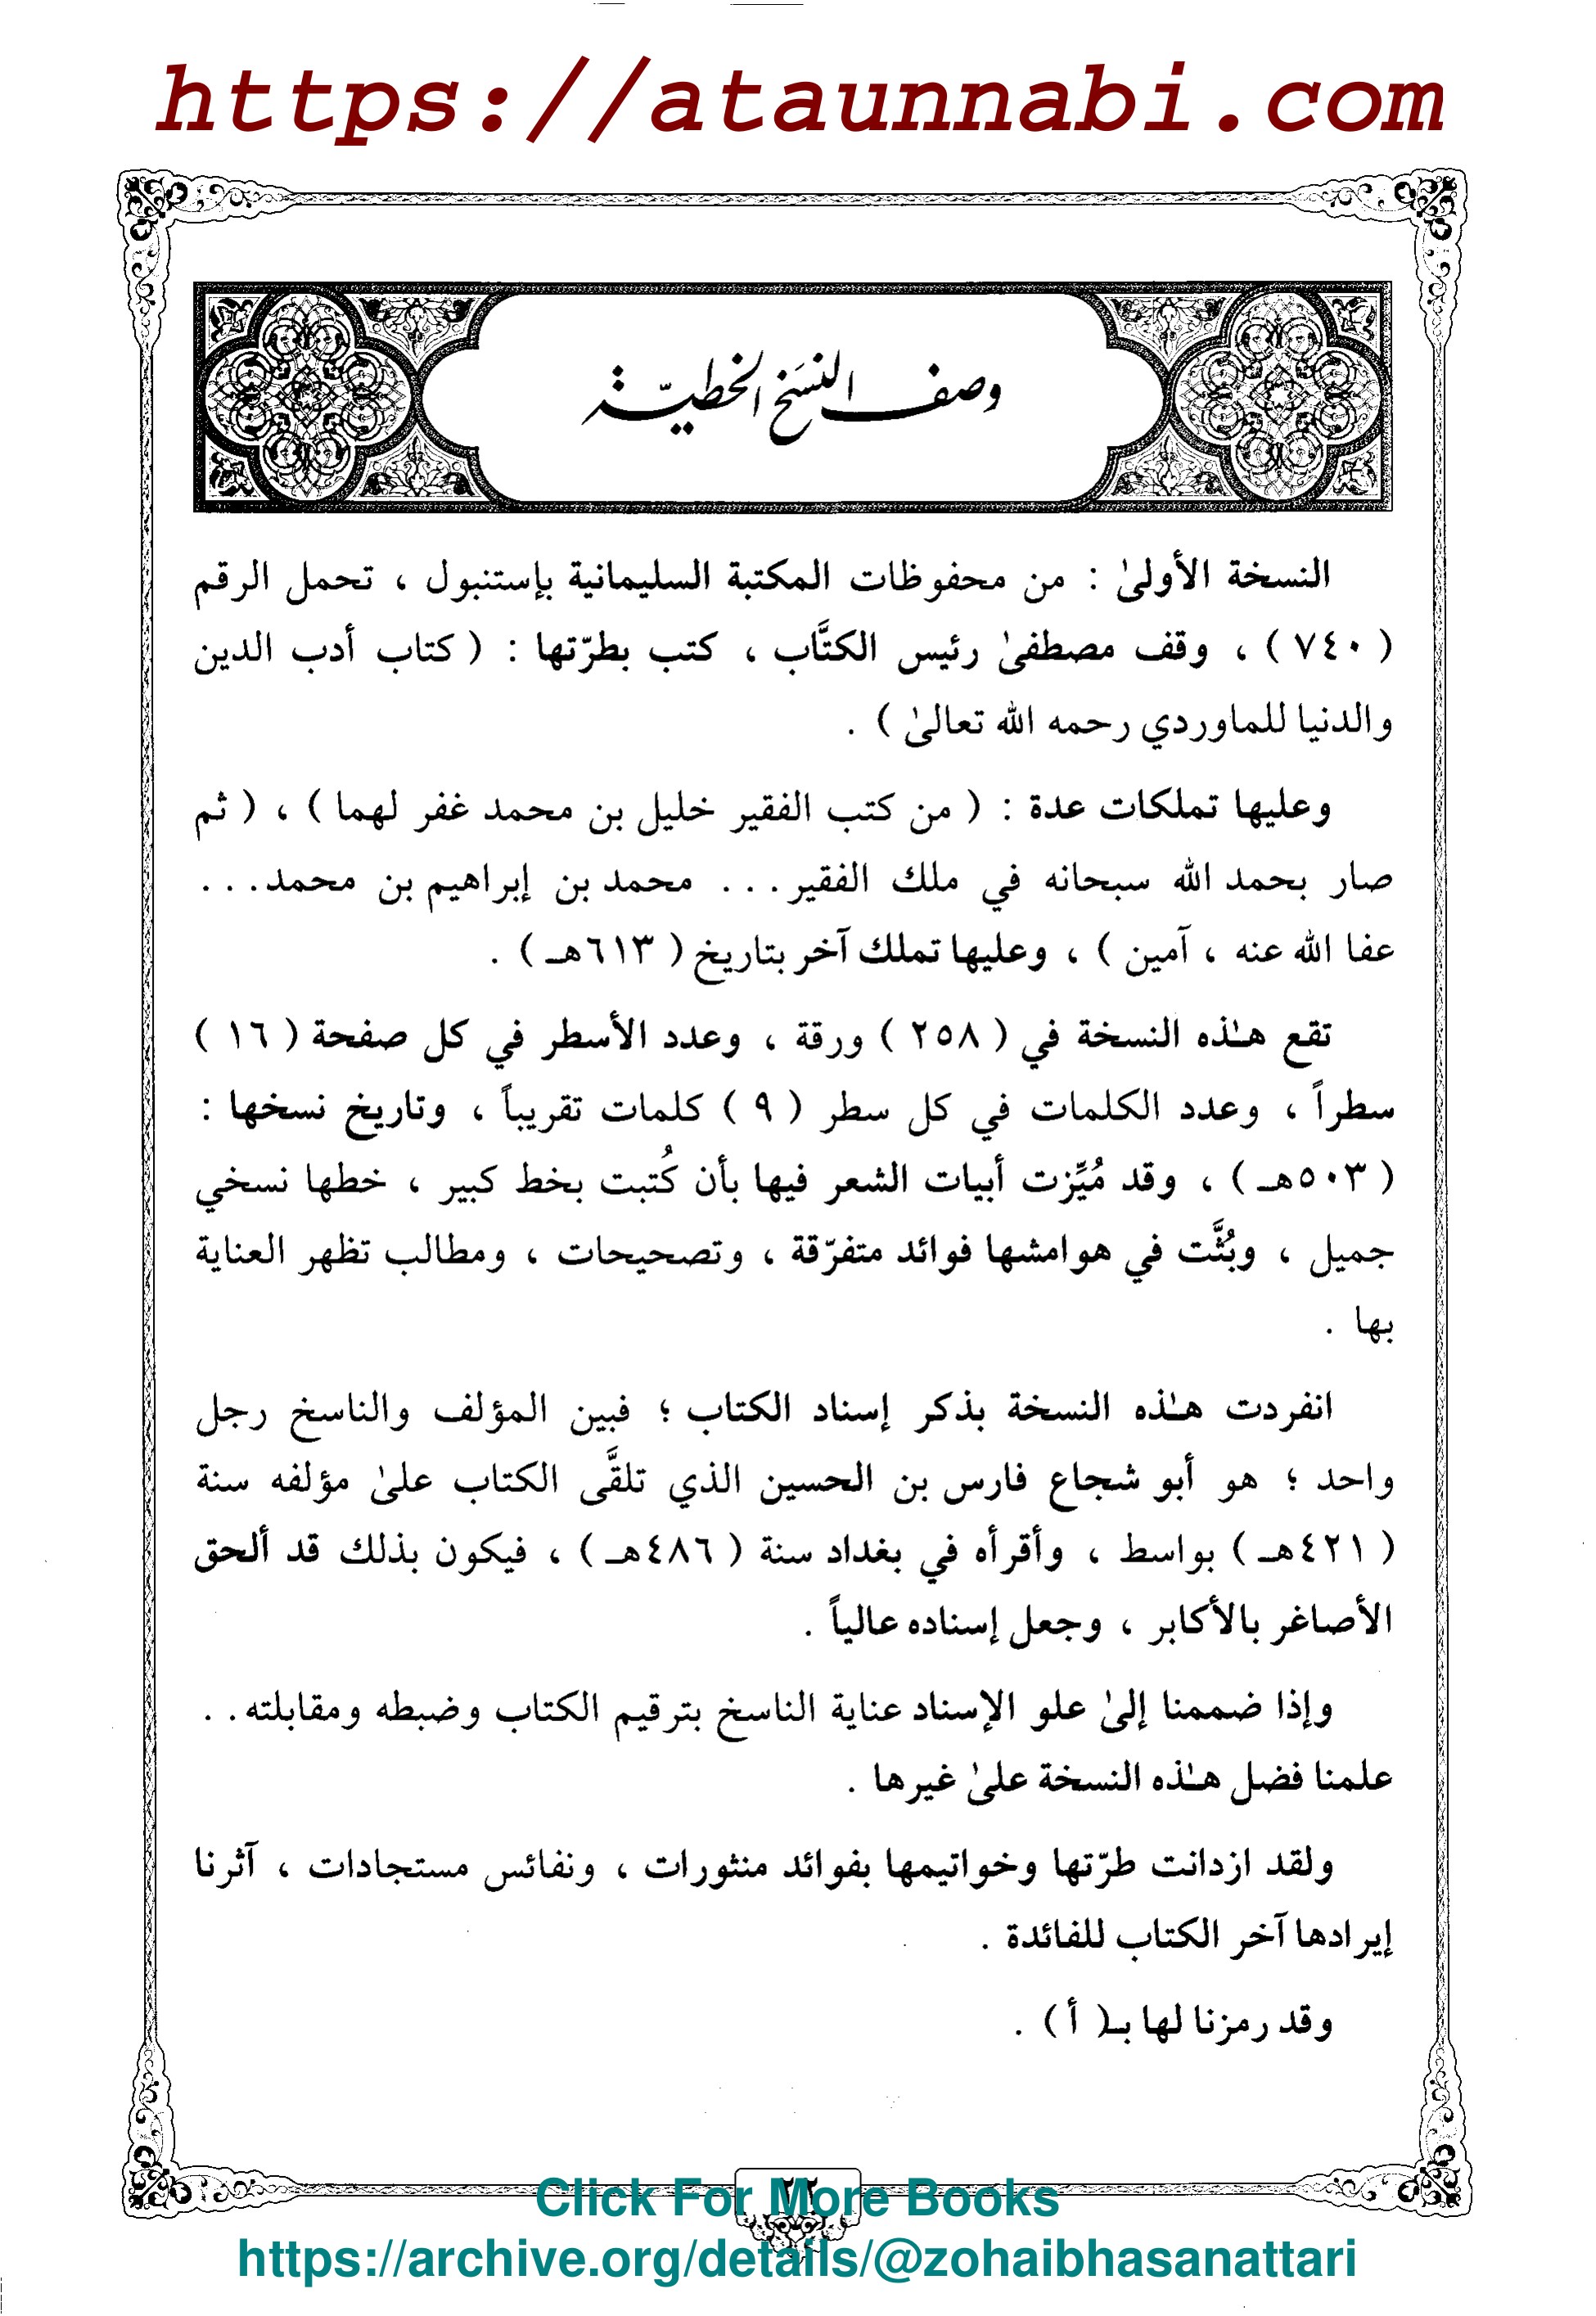 https://ataunnabi.com
وصف النسَخ الخطيّة
النسخة الأولىٰ : من محفوظات المكتبة السليمانية بإستنبول ، تحمل الرقم
( ٧٤٠ ) ، وقف مصطفىٰ رئيس الكتَّاب ، كتب بطرّتها : ( كتاب أدب الدين
والدنيا للماوردي رحمه الله تعالىٰ ) .
وعليها تملكات عدة : ( من كتب الفقير خليل بن محمد غفر لهما ) ، ( ثم
صار بحمد الله سبحانه في ملك الفقير . . . محمد بن إبراهيم بن محمد . . .
عفا الله عنه ، آمين ) ، وعليها تملك آخر بتاريخ ( ٦١٣هـ ) .
تقع هـٰذه النسخة في ( ٢٥٨ ) ورقة ، وعدد الأسطر في كل صفحة ( ١٦ )
سطراً ، وعدد الكلمات في كل سطر ( ٩ ) كلمات تقريباً ، وتاريخ نسخها :
( ٥٠٣هـ ) ، وقد مُيِّزت أبيات الشعر فيها بأن كُتبت بخط كبير ، خطها نسخي
جميل ، وبُثَّت في هوامشها فوائد متفرّقة ، وتصحيحات ، ومطالب تظهر العناية
بها .
انفردت هـٰذه النسخة بذكر إسناد الكتاب ؛ فبين المؤلف والناسخ رجل
واحد ؛ هو أبو شجاع فارس بن الحسين الذي تلقَّى الكتاب علىٰ مؤلفه سنة
( ٤٢١هـ ) بواسط ، وأقرأه في بغداد سنة ( ٤٨٦هـ ) ، فيكون بذلك قد ألحق
الأصاغر بالأكابر ، وجعل إسناده عالياً .
وإذا ضممنا إلىٰ علو الإسناد عناية الناسخ بترقيم الكتاب وضبطه ومقابلته . .
علمنا فضل هـٰذه النسخة علىٰ غيرها .
ولقد ازدانت طرّتها وخواتيمها بفوائد منثورات ، ونفائس مستجادات ، آثرنا
إيرادها آخر الكتاب للفائدة .
وقد رمزنا لها بـ( أ ) .
٢٢
Click For More Books
https://archive.org/details/@zohaibhasanattari